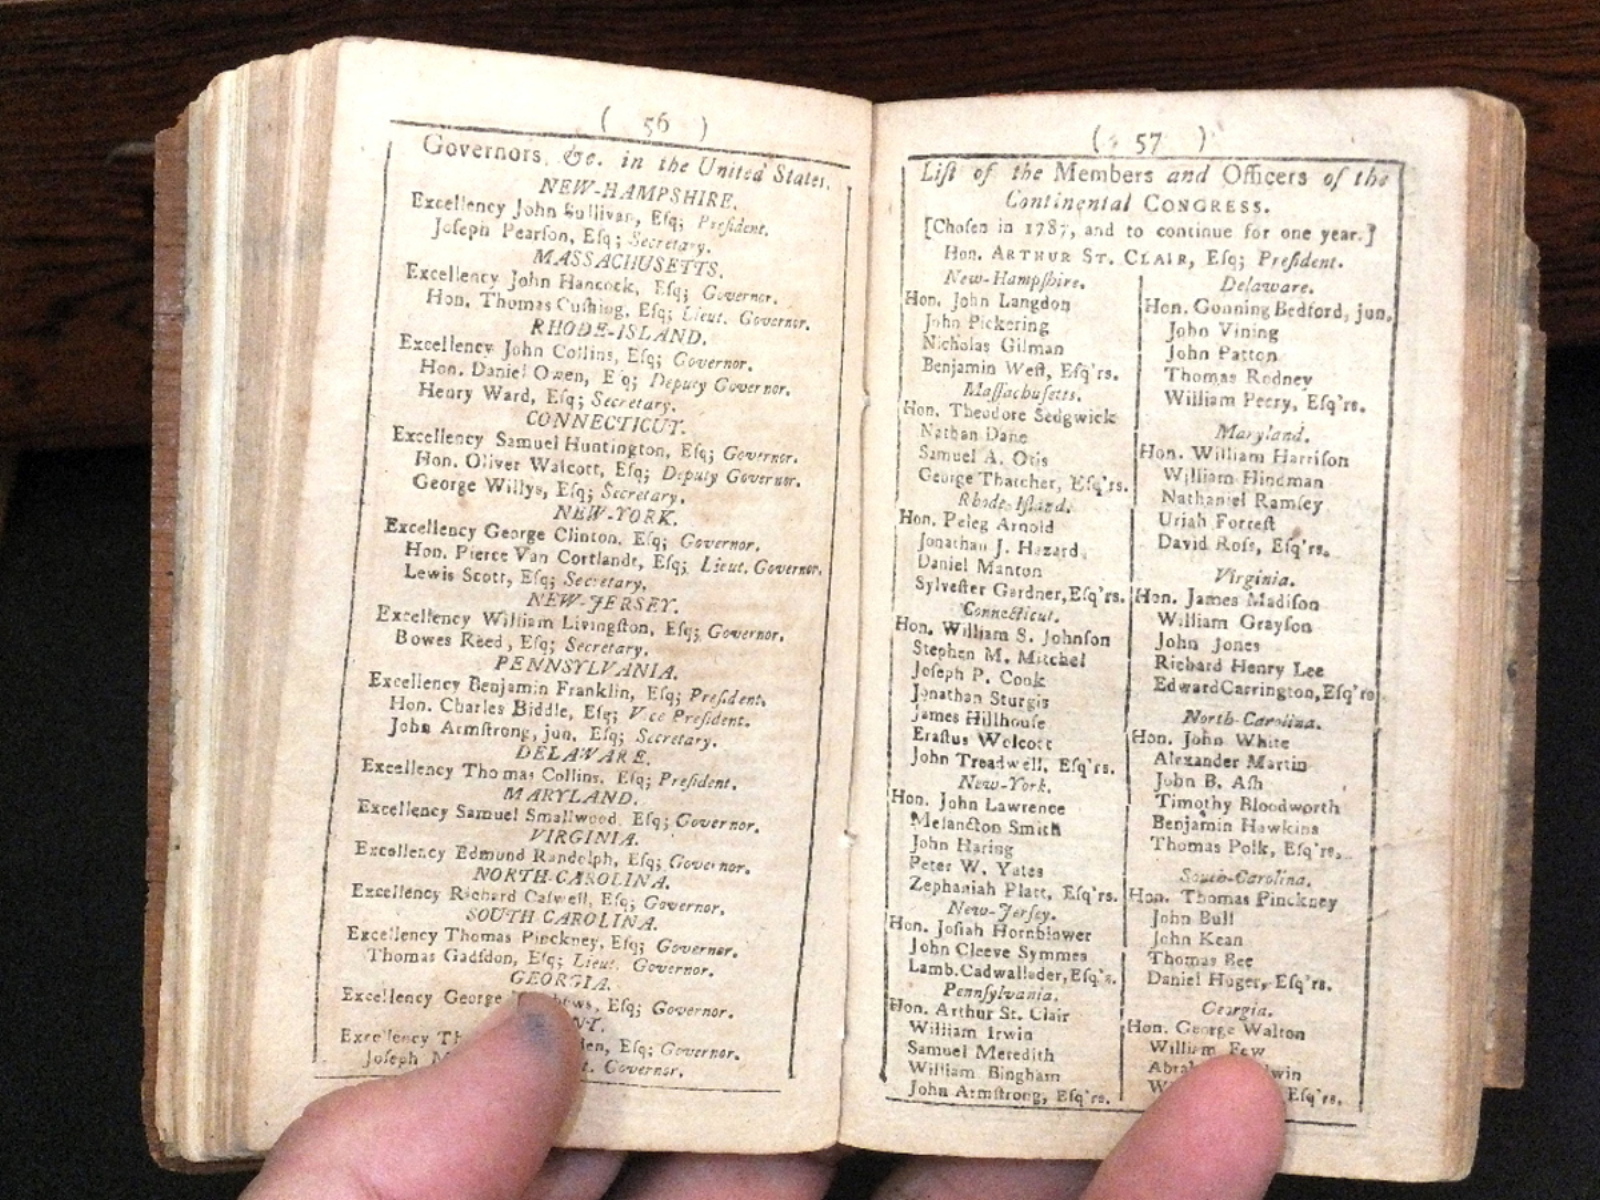 ( 56 )
Governors, &c. in the United States.
NEW-HAMPSHIRE.
Excellency John Sullivan, Eſq; Preſident.
Joſeph Pearſon, Eſq; Secretary.
MASSACHUSETTS.
Excellency John Hancock, Eſq; Governor.
Hon. Thomas Cuſhing, Eſq; Lieut. Governor.
RHODE-ISLAND.
Excellency John Collins, Eſq; Governor.
Hon. Daniel Owen, Eſq; Deputy Governor.
Henry Ward, Eſq; Secretary.
CONNECTICUT.
Excellency Samuel Huntington, Eſq; Governor.
Hon. Oliver Walcott, Eſq; Deputy Governor.
George Willys, Eſq; Secretary.
NEW-YORK.
Excellency George Clinton, Eſq; Governor.
Hon. Pierce Van Cortlandt, Eſq; Lieut. Governor.
Lewis Scott, Eſq; Secretary.
NEW-JERSEY.
Excellency William Livingſton, Eſq; Governor.
Bowes Reed, Eſq; Secretary.
PENNSYLVANIA.
Excellency Benjamin Franklin, Eſq; Preſident.
Hon. Charles Biddle, Eſq; Vice Preſident.
John Armſtrong, jun. Eſq; Secretary.
DELAWARE.
Excellency Thomas Collins, Eſq; Preſident.
MARYLAND.
Excellency Samuel Smallwood, Eſq; Governor.
VIRGINIA.
Excellency Edmund Randolph, Eſq; Governor.
NORTH-CAROLINA.
Excellency Richard Caſwell, Eſq; Governor.
SOUTH CAROLINA.
Excellency Thomas Pinckney, Eſq; Governor.
Thomas Gadſdon, Eſq; Lieut. Governor.
GEORGIA.
Excellency George Eſq; Governor.
Excellency Eſq; Governor.
Joſeph Governor.
( 57 )
Liſt of the Members and Officers of the
Continental CONGRESS.
[Choſen in 1787, and to continue for one year.]
Hon. ARTHUR ST. CLAIR, Eſq; Preſident.
New-Hampſhire.
Hon. John Langdon
John Pickering
Nicholas Gilman
Benjamin Weſt, Eſq'rs.
Maſſachuſetts.
Hon. Theodore Sedgwick
Nathan Dane
Samuel A. Otis
George Thatcher, Eſq'rs.
Rhode-Iſland.
Hon. Peleg Arnold
Jonathan J. Hazard
Daniel Manton
Sylveſter Gardner, Eſq'rs.
Connecticut.
Hon. William S. Johnſon
Stephen M. Mitchel
Joſeph P. Cook
Jonathan Sturgis
James Hillhouſe
Eraſtus Wolcott
John Treadwell, Eſq'rs.
New-York.
Hon. John Lawrence
Melancton Smith
John Haring
Peter W. Yates
Zephaniah Platt, Eſq'rs.
New-Jerſey.
Hon. Joſiah Hornblower
John Cleeve Symmes
Lamb. Cadwallader, Eſq'rs.
Pennſylvania.
Hon. Arthur St. Clair
William Irwin
Samuel Meredith
William Bingham
John Armſtrong, Eſq'rs.
Delaware.
Hon. Gunning Bedford, jun.
John Vining
John Patton
Thomas Rodney
William Peery, Eſq'rs.
Maryland.
Hon. William Harriſon
William Hindman
Nathaniel Ramſey
Uriah Forreſt
David Roſs, Eſq'rs.
Virginia.
Hon. James Madiſon
William Grayſon
John Jones
Richard Henry Lee
Edward Carrington, Eſq'rs
North-Carolina.
Hon. John White
Alexander Martin
John B. Aſh
Timothy Bloodworth
Benjamin Hawkins
Thomas Polk, Eſq'rs.
South-Carolina.
Hon. Thomas Pinckney
John Bull
John Kean
Thomas Bee
Daniel Huger, Eſq'rs.
Georgia.
Hon. George Walton
William Few
Eſq'rs.